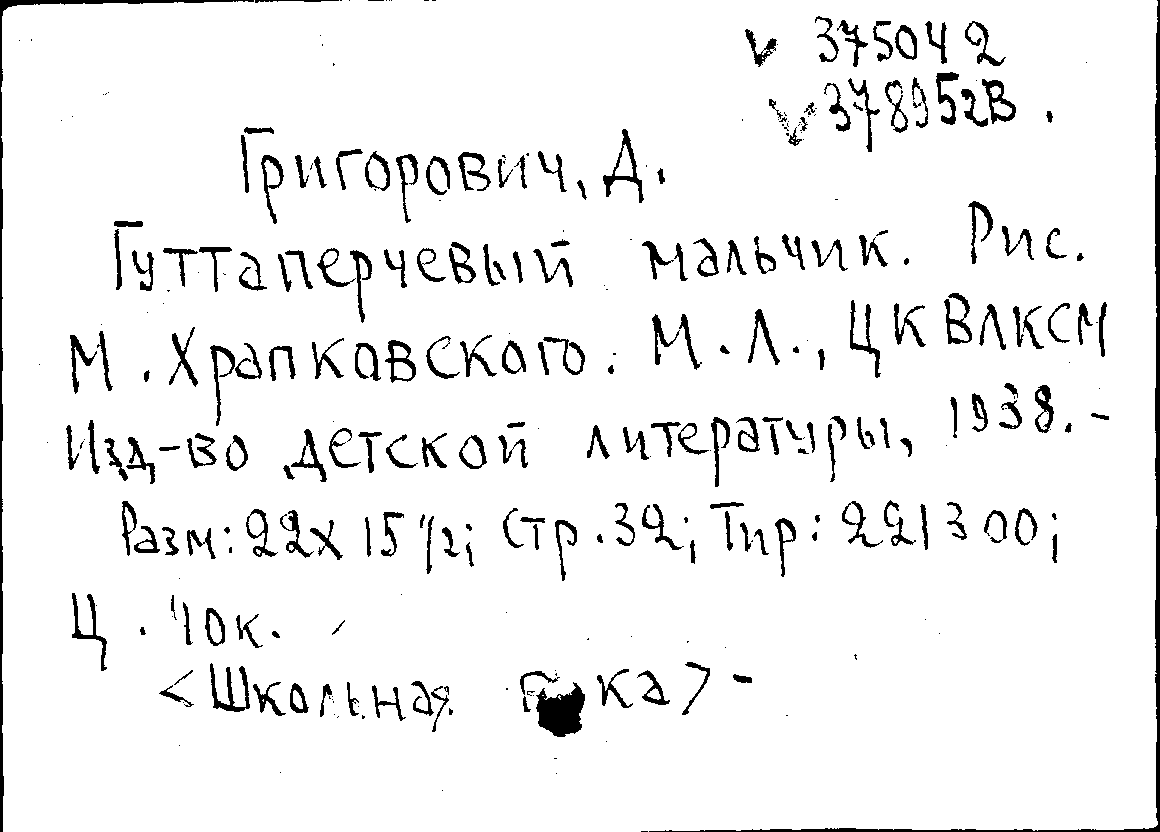 ✓ 375042
✓ 378952В.
Григорович, Д.
Гуттаперчевый мальчик. Рис.
М. Храпковского. М.-Л., ЦК ВЛКСМ
Изд-во детской литературы, 1938. -
Разм: 22х15 1/2; Стр. 32; Тир: 221300;
Ц. 40к.
<Школьная ка> -